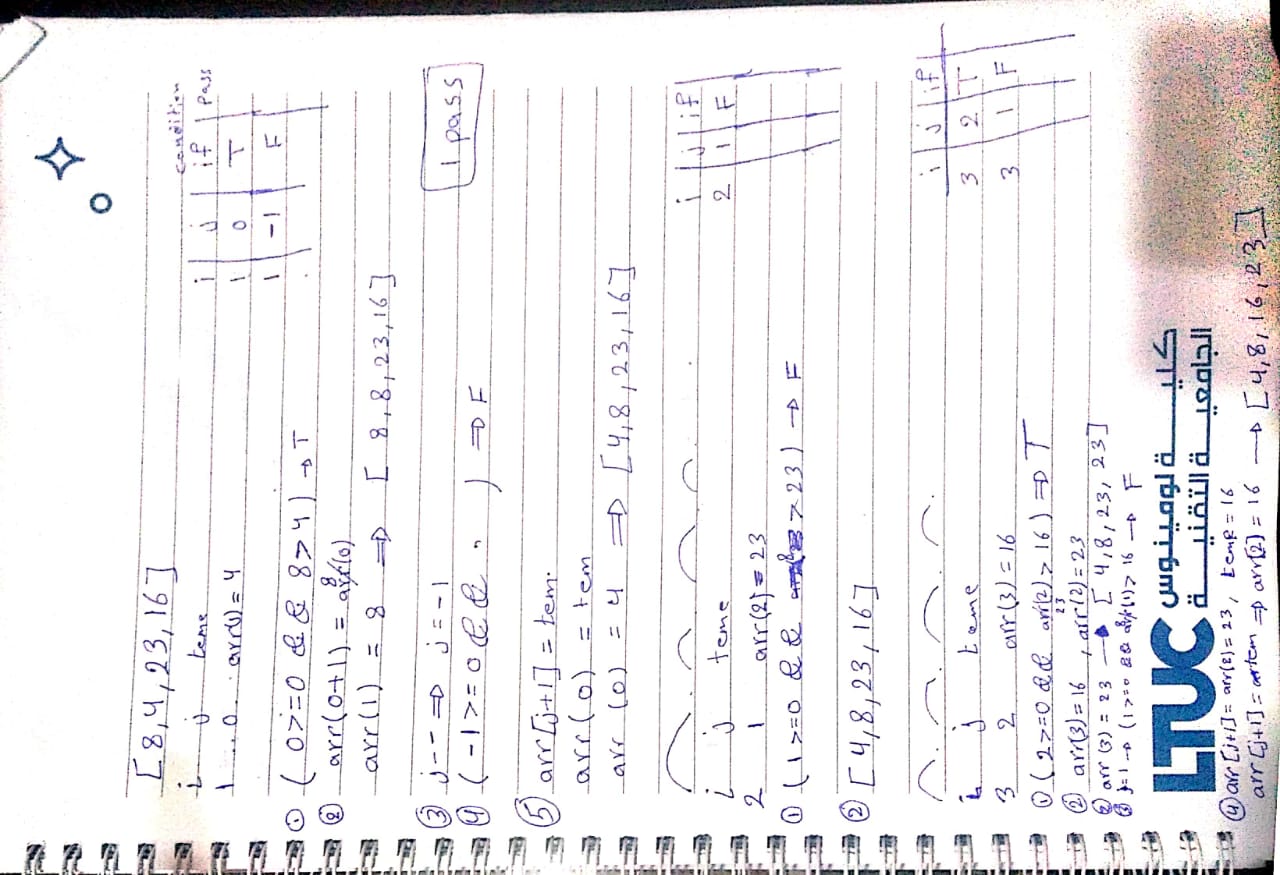 [8,4,23,16]
i j teme
1 0 arr(1) = 4
condition
i j if pass
1 0 T
1 -1 F
① ( 0>=0 && 8>4 ) → T
② arr(0+1) = arr(0) 8
arr(1) = 8 ⇒ [ 8,8,23,16]
③ j-- ⇒ j = -1
④ ( -1>=0 && " ) ⇒ F
1 pass
⑤ arr[j+1] = tem.
arr(0) = tem
arr (0) = 4 ⇒ [4,8,23,16]
i j teme
2 1 arr(2] = 23
i j if
2 1 F
① ( 1>=0 && 8 > 23 ) → F
② [4,8,23,16]
i j teme
3 2 arr(3) = 16
i j if
3 2 T
3 1 F
① ( 2>=0 && arr(2) > 16 ) ⇒ T
23
② arr(3) = 16 , arr(2) = 23
② arr (3) = 23 → [ 4,8,23,23]
③ j=1 → (1>=0 && arr(1)> 16 → F
8
LTUC كلية لومينوس
الجامعية التقنية
④ arr [j+1] = arr(2) = 23, temp = 16
arr [j+1] = tem ⇒ arr[2] = 16 → [4,8,16,23]